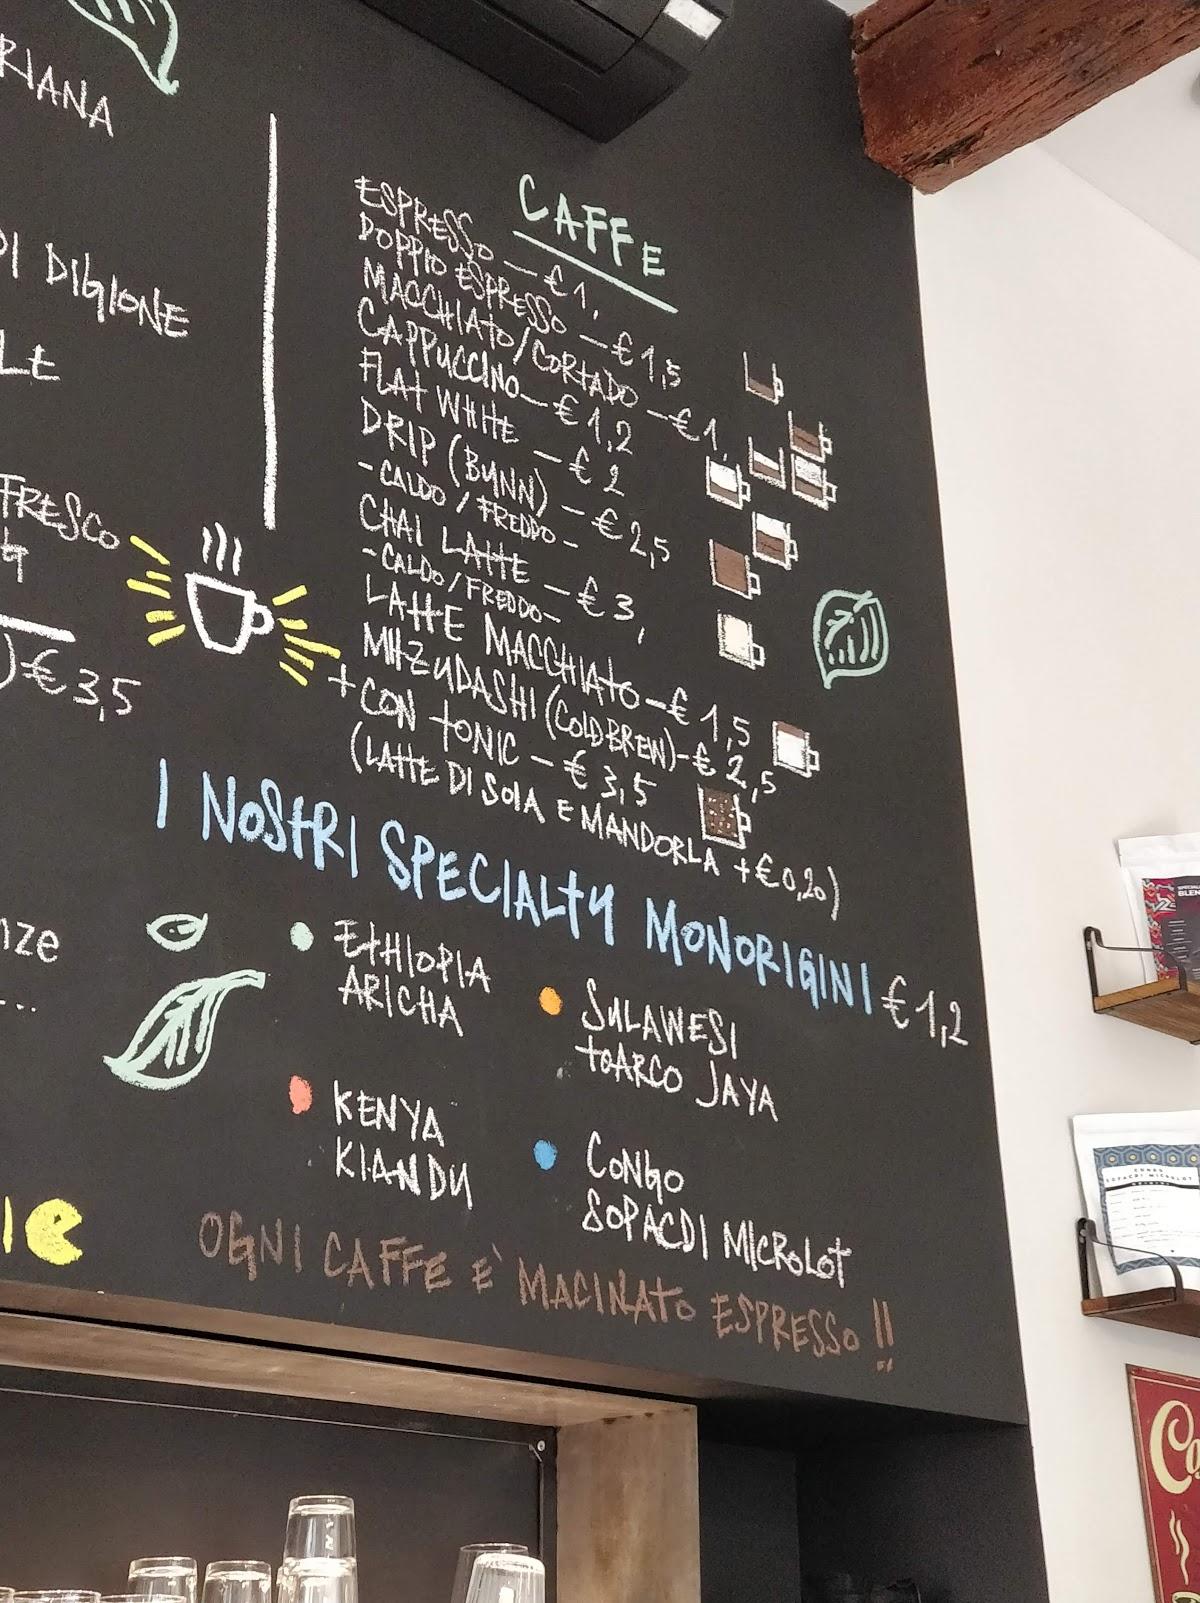 RIANA
DI DIGIONE
LE
FRESCO
) € 3,5
nze
...
CAFFE
ESPRESSO — € 1,
DOPPIO ESPRESSO — € 1,5
MACCHIATO/CORTADO — € 1,
CAPPUCCINO — € 1,2
FLAT WHITE — € 2
DRIP (BUNN) — € 2,5
-CALDO / FREDDO-
CHAI LATTE — € 3,
-CALDO/FREDDO-
LATTE MACCHIATO — € 1,5
MIZUDASHI (COLDBREW) - € 2,5
+ CON TONIC — € 3,5
(LATTE DI SOIA E MANDORLA + € 0,20)
I NOSTRI SPECIALTY MONORIGINI € 1,2
ETHIOPIA
ARICHA
SULAWESI
TOARCO JAYA
KENYA
KIANDU
CONGO
SOPACDI MICROLOT
OGNI CAFFE E' MACINATO ESPRESSO !!
BLEN
CONGO
SOPACDI MICROLOT
Co